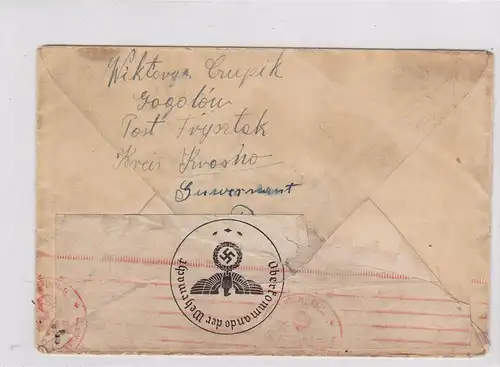 Wiktorya Czupik
Gogołów
Post Frysztak
Kreis Krosno
Guwernant
Oberkommando der Wehrmacht